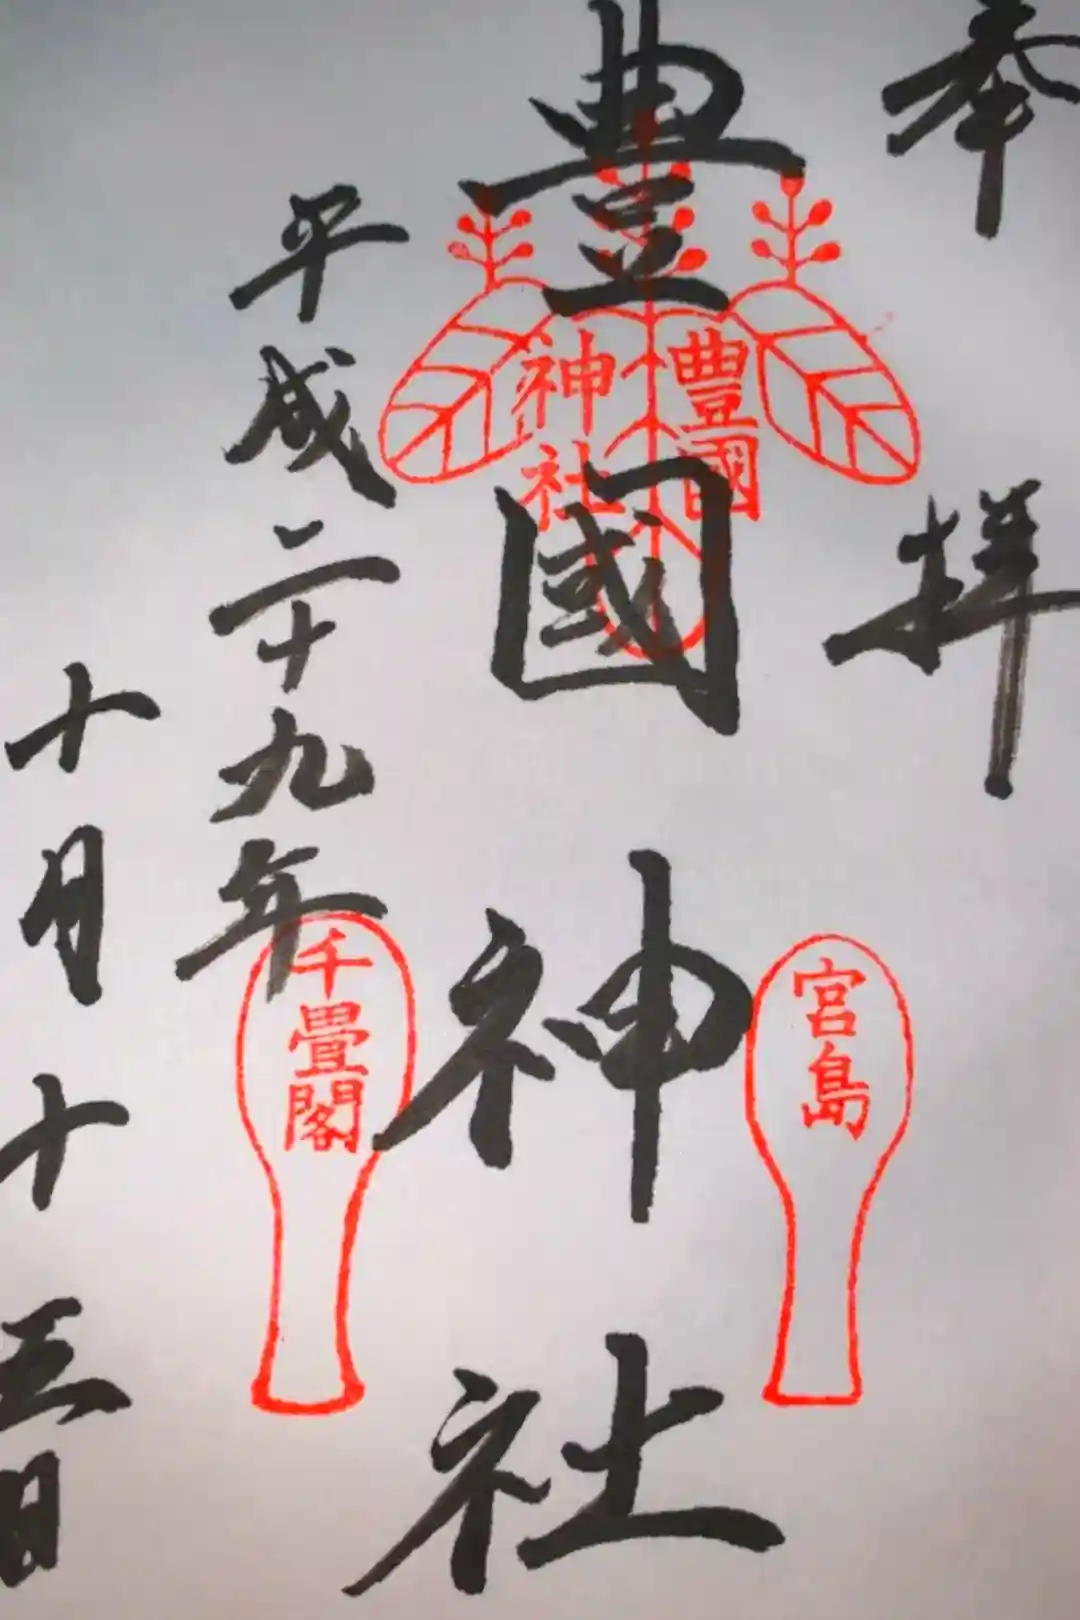 奉拝
豊國神社
豊國
神社
宮島
平成二十九年
千畳閣
十月十五日